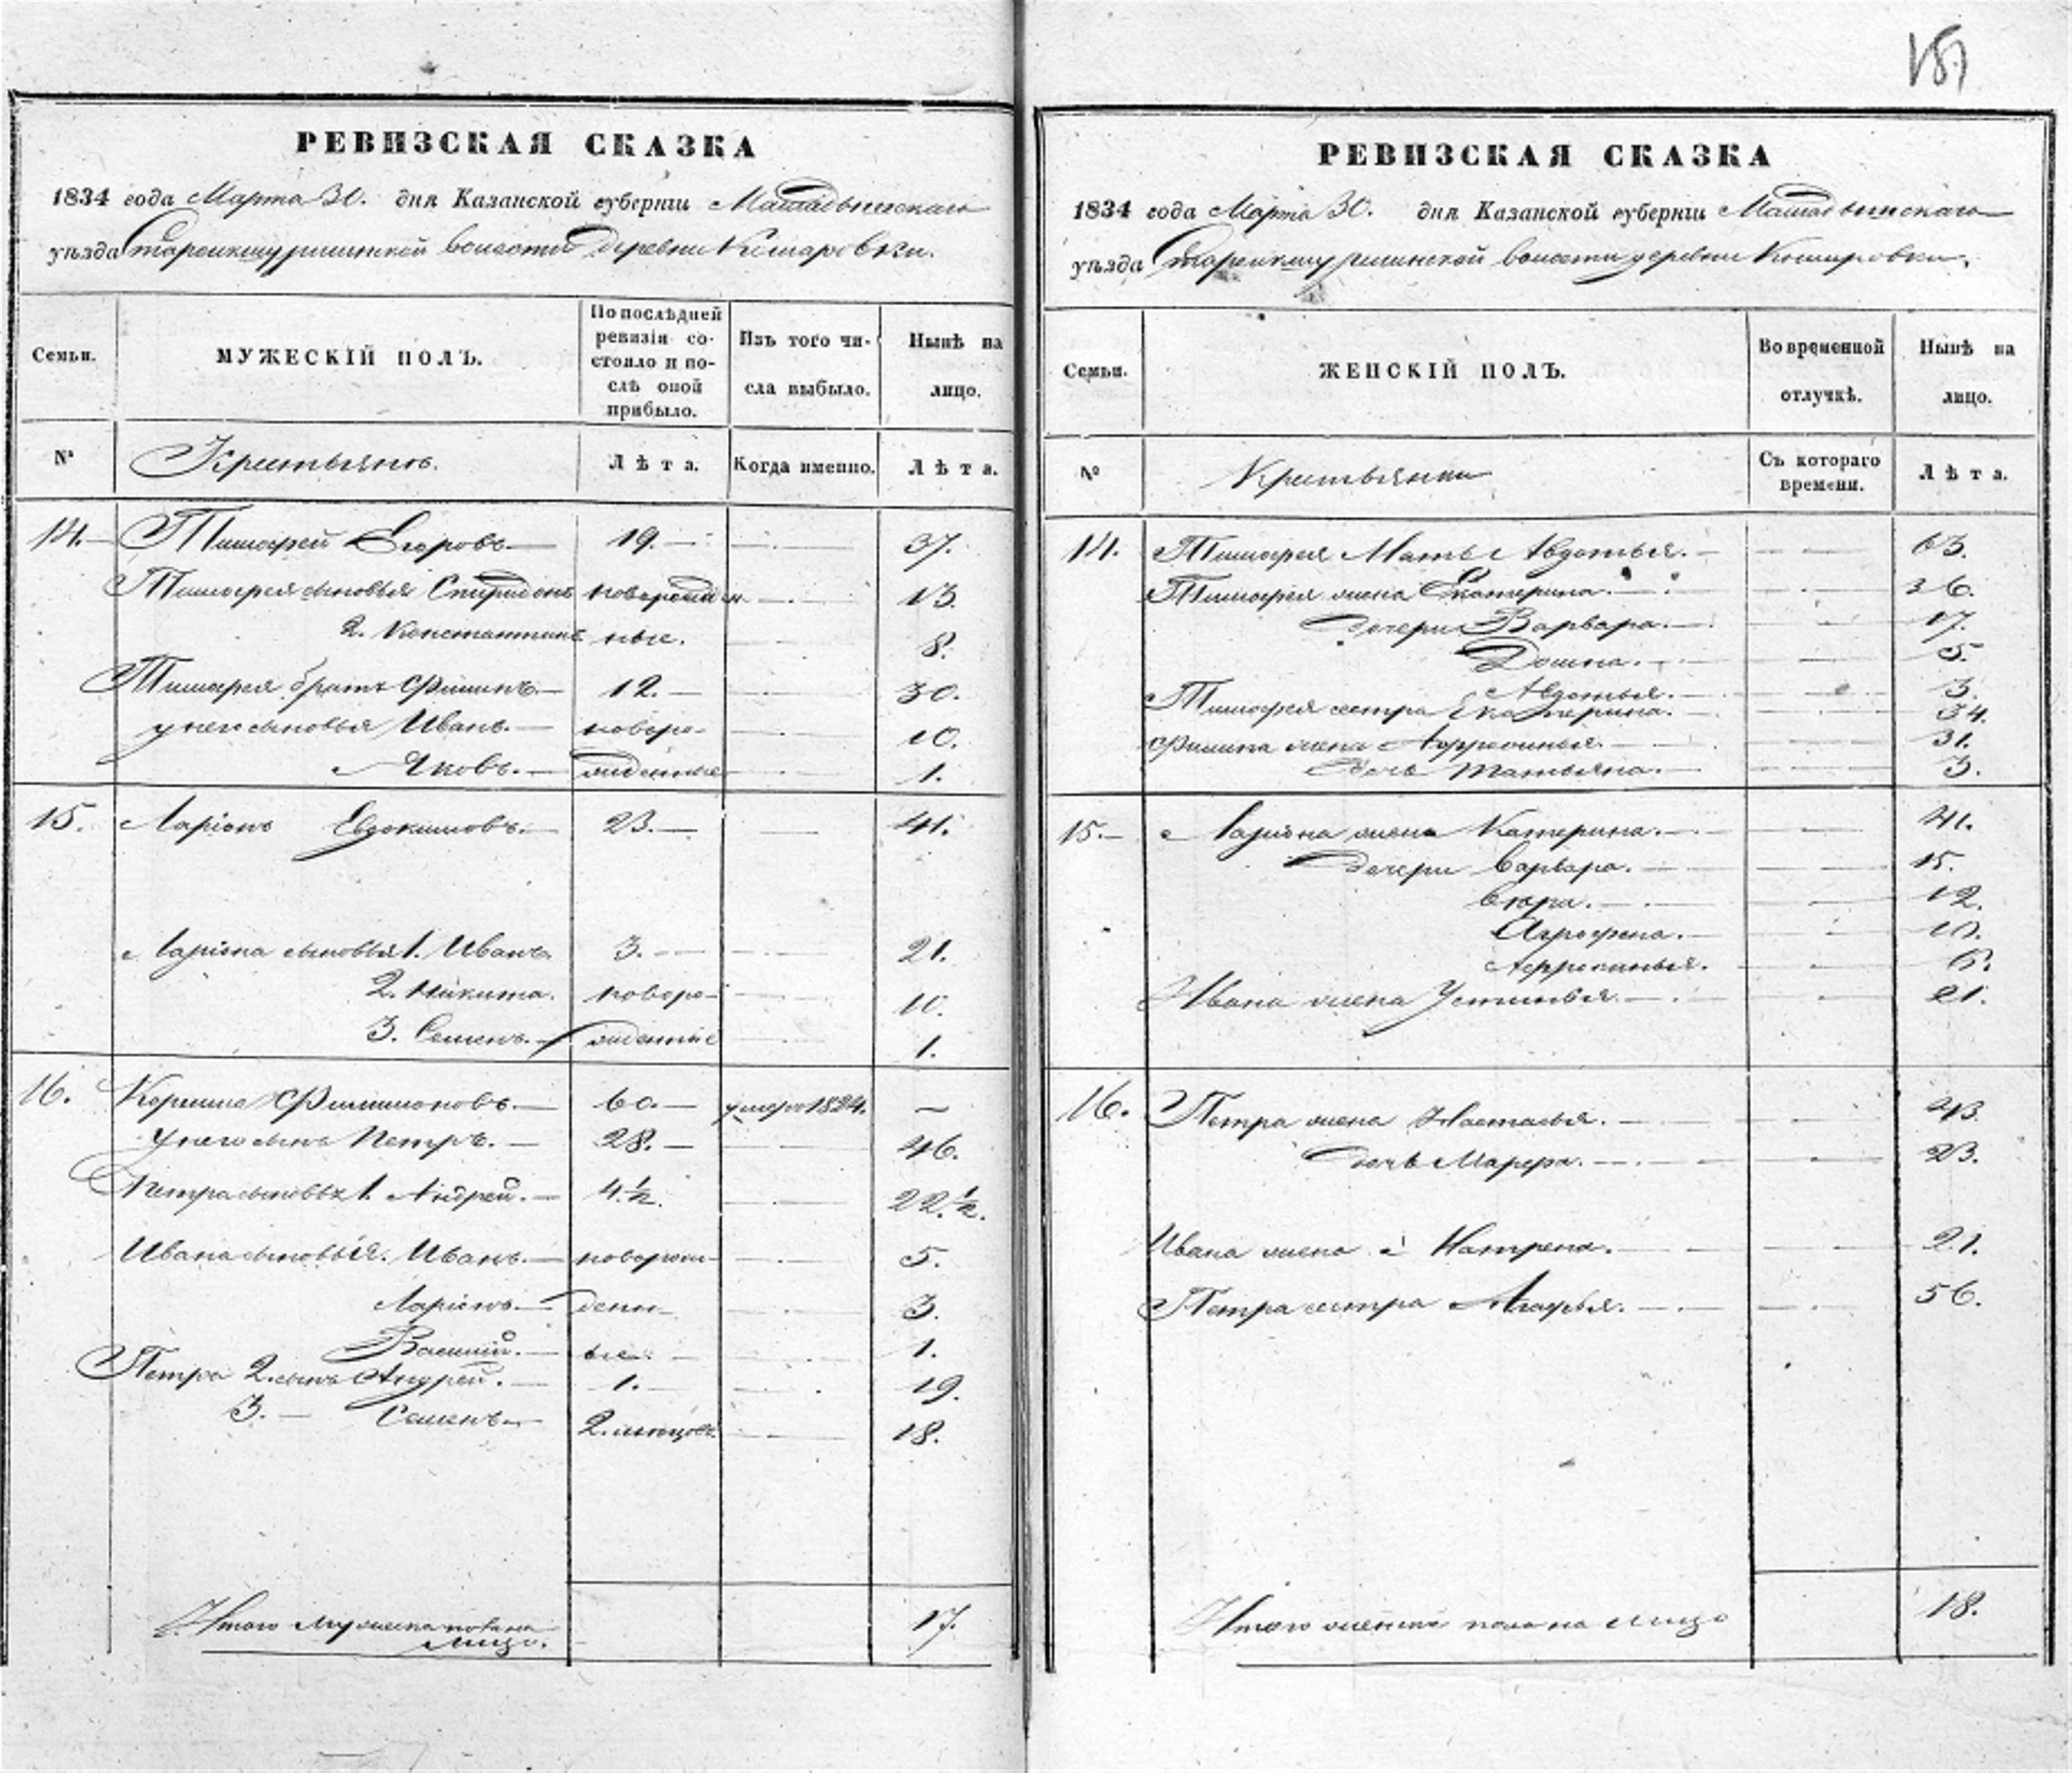 15
РЕВИЗСКАЯ СКАЗКА
1834 года Марта 30. дня Казанской губерніи Мамадышскаго
уѣзда волости деревни Комаровки.
Семьи.
МУЖЕСКІЙ ПОЛЪ.
По послѣдней ревизіи состояло и послѣ оной прибыло.
Изъ того числа выбыло.
Нынѣ на лицо.
№
Крестьяне.
Лѣта.
Когда именно.
Лѣта.
14. Тимофей Егоровъ 19. 37.
Тимофея сыновья Спиридонъ новорожден 13.
2. Константинъ ные. 8.
Тимофея братъ Филипъ 12. 30.
у него сыновья Иванъ. новоро- 10.
Яковъ. жденные 1.
15. Ларіонъ Евдокимовъ. 23. 41.
Ларіона сыновья 1. Иванъ 3. 21.
2. Никита. новоро- 10.
3. Семенъ. жденные 1.
16. Филимоновъ. 60. умеръ 1824.
у него сынъ Петръ. 28. 46.
Петра сыновья 1. Андрей. 4 1/2. 22 1/2.
Ивана сыновья. Иванъ. неворож- 5.
Ларіонъ. денн- 3.
Василій. ые. 1.
Петра 2. сынъ Андрей. 1. 19.
3. Семенъ. 2. месяцовъ 18.
Итого мужеска пола на лицо. 17.
РЕВИЗСКАЯ СКАЗКА
1834 года Марта 30. дня Казанской губерніи Мамадышскаго
уѣзда волости деревни Комаровки.
Семьи.
ЖЕНСКІЙ ПОЛЪ.
Во временной отлучкѣ.
Нынѣ на лицо.
№
Крестьянки
Съ котораго времени.
Лѣта.
14. Тимофея Мать Авдотья. 63.
Тимофея жена Екатерина. 36.
дочери Варвара. 17.
Домна. 5.
Авдотья. 3.
Тимофея сестра Екатерина. 34.
Филипа жена Афросинья. 31.
дочь Татьяна. 3.
15. Ларіона жена Катерина. 41.
дочери Варвара. 15.
12.
Агрофена. 10.
Афросинья. 6.
Ивана жена Устинья. 21.
16. Петра жена Настасья. 43.
дочь Марфа. 23.
Ивана жена Матрена. 21.
Петра сестра Агафья. 56.
Итого женска пола на лицо 18.